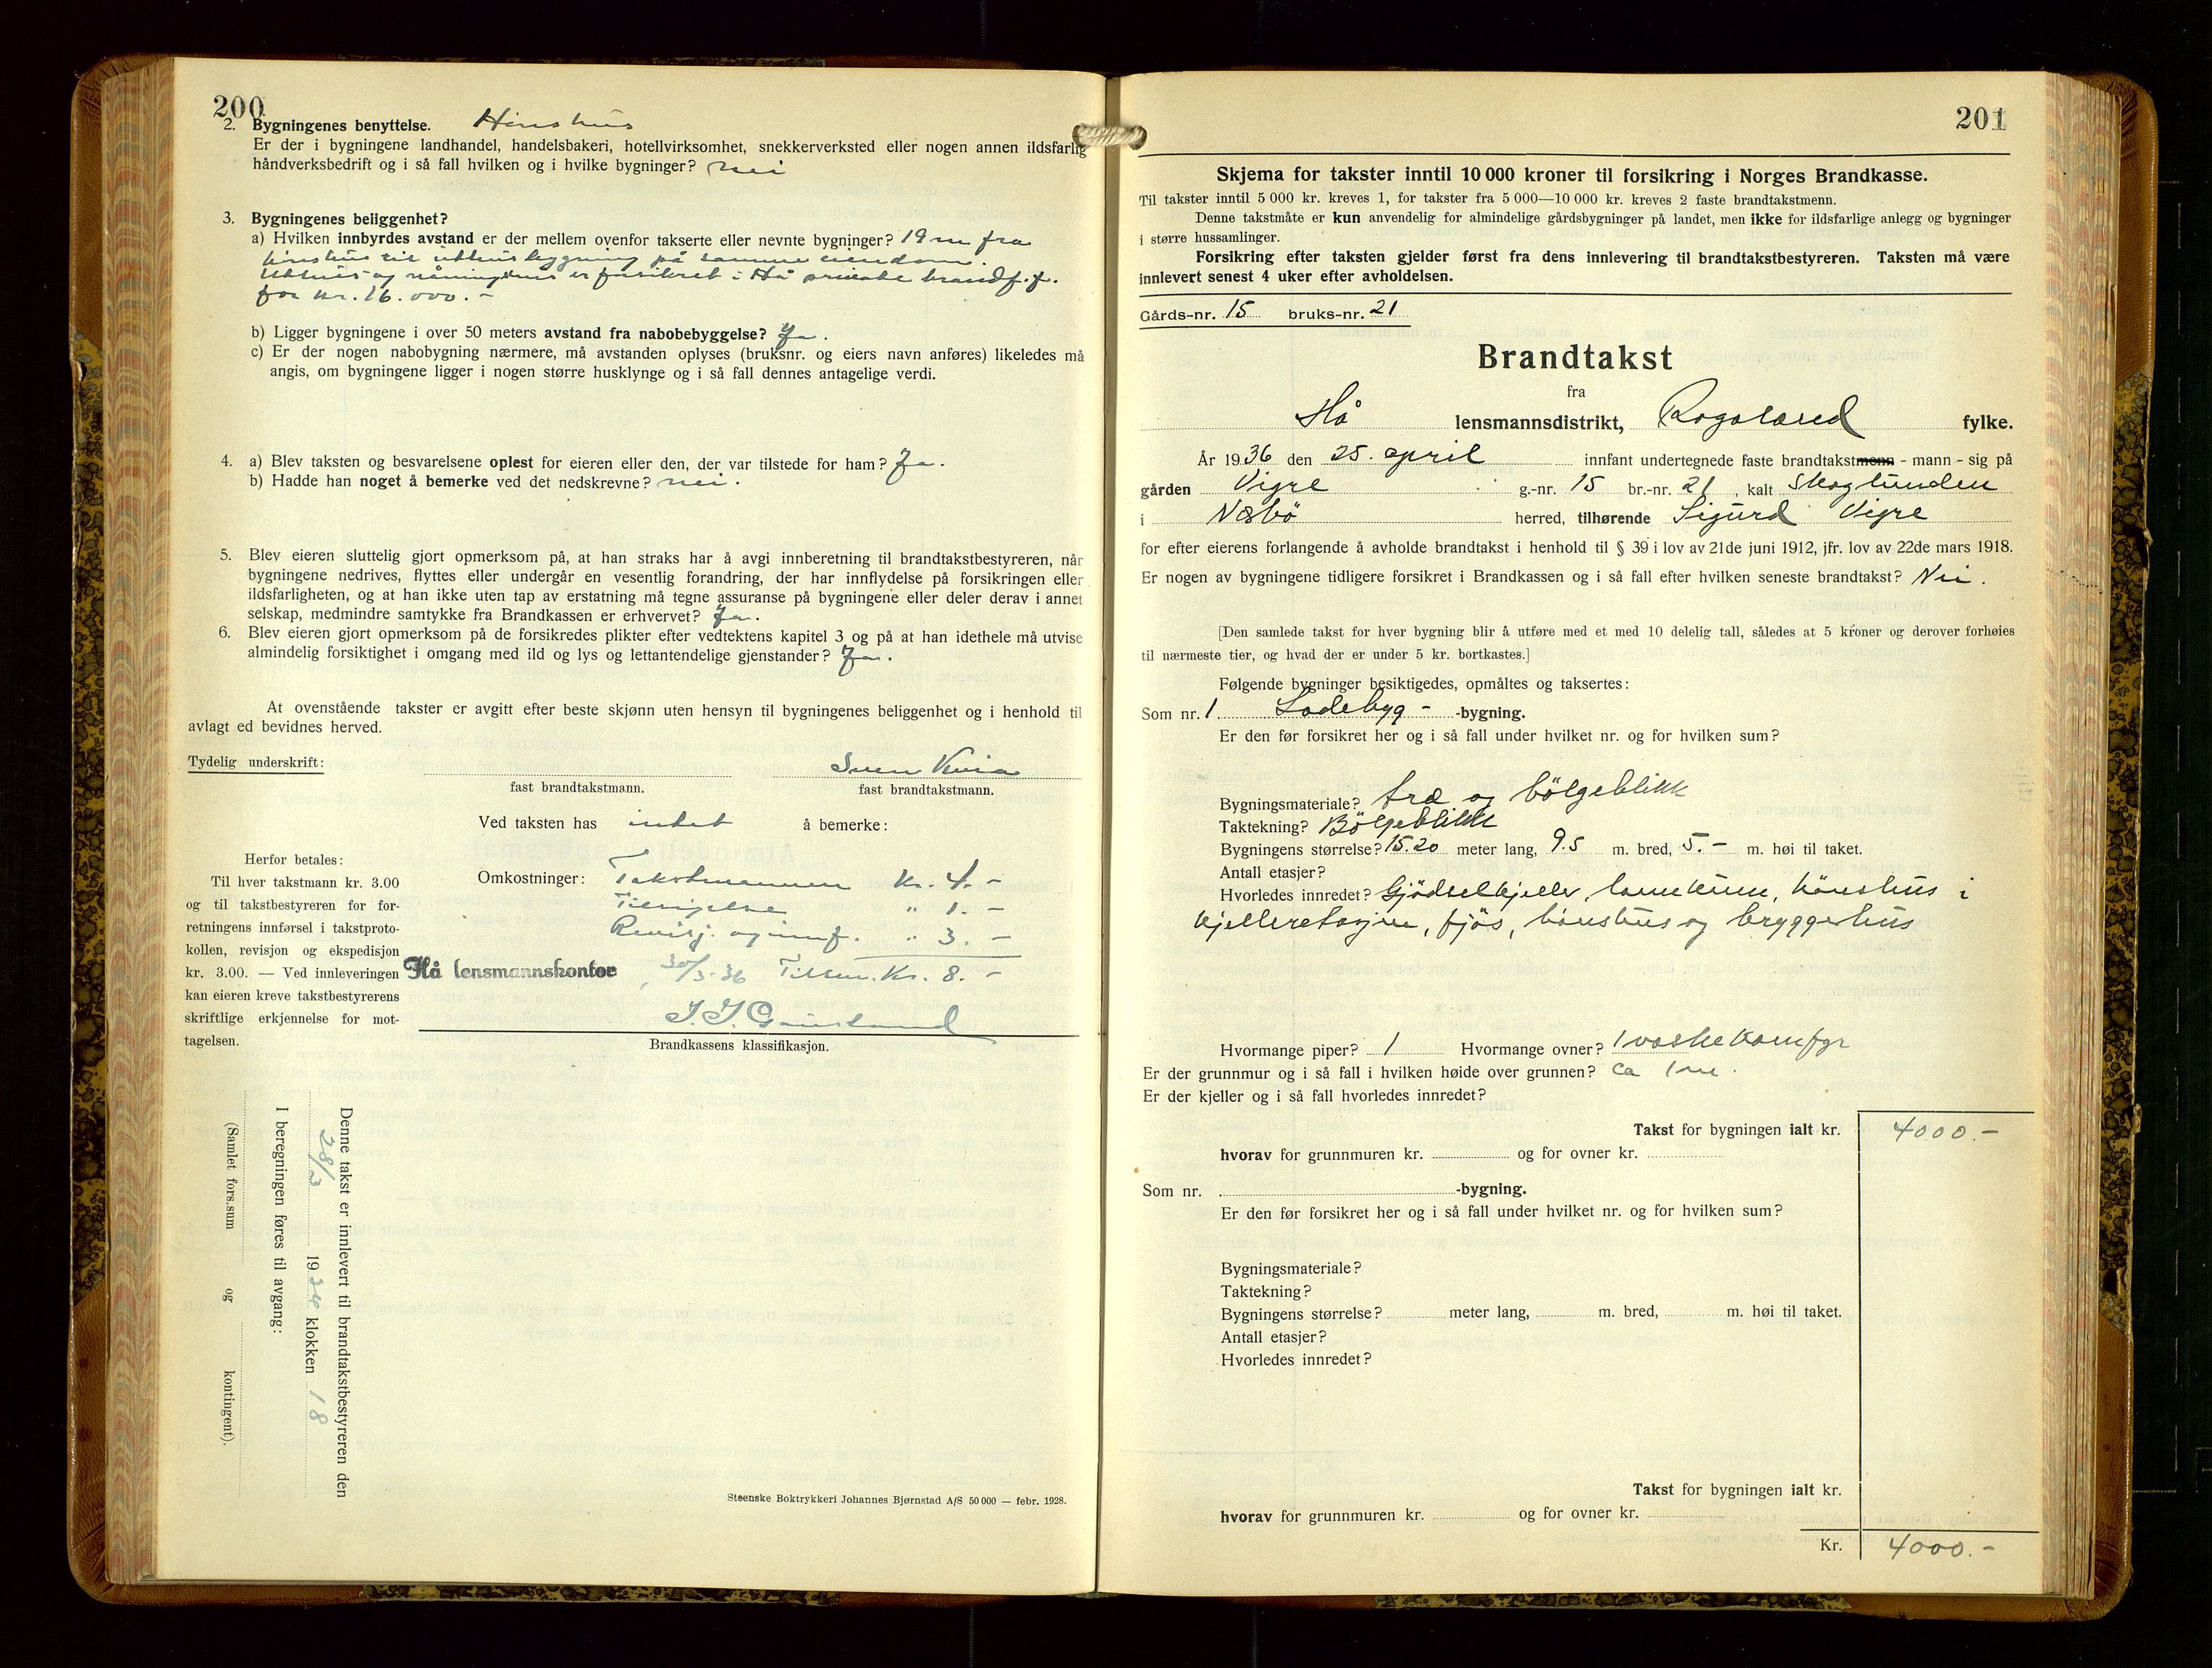 200
2. Bygningenes benyttelse. Hønshus
Er der i bygningene landhandel, handelsbakeri, hotellvirksomhet, snekkerverksted eller nogen annen ildsfarlig
håndverksbedrift og i så fall hvilken og i hvilke bygninger? nei
3. Bygningenes beliggenhet?
a) Hvilken innbyrdes avstand er der mellem ovenfor takserte eller nevnte bygninger? 19 m fra
hønshus til uthusbygning på samme eiendom.
Uthus og våningshus er forsikret i Hå private brandf.f.
for kr. 16.000.-
b) Ligger bygningene i over 50 meters avstand fra nabobebyggelse? Ja.
c) Er der nogen nabobygning nærmere, må avstanden oplyses (bruksnr. og eiers navn anføres) likeledes må
angis, om bygningene ligger i nogen større husklynge og i så fall dennes antagelige verdi.
4. a) Blev taksten og besvarelsene oplest for eieren eller den, der var tilstede for ham? Ja.
b) Hadde han noget å bemerke ved det nedskrevne? nei.
5. Blev eieren sluttelig gjort opmerksom på, at han straks har å avgi innberetning til brandtakstbestyreren, når
bygningene nedrives, flyttes eller undergår en vesentlig forandring, der har innflydelse på forsikringen eller
ildsfarligheten, og at han ikke uten tap av erstatning må tegne assuranse på bygningene eller deler derav i annet
selskap, medmindre samtykke fra Brandkassen er erhvervet? Ja.
6. Blev eieren gjort opmerksom på de forsikredes plikter efter vedtektens kapitel 3 og på at han idethele må utvise
almindelig forsiktighet i omgang med ild og lys og lettantendelige gjenstander? Ja.
At ovenstående takster er avgitt efter beste skjønn uten hensyn til bygningenes beliggenhet og i henhold til
avlagt ed bevidnes herved.
Tydelig underskrift: Sven Kvia
fast brandtakstmann. fast brandtakstmann.
Ved taksten has intet å bemerke:
Herfor betales:
Til hver takstmann kr. 3.00
og til takstbestyreren for for-
retningens innførsel i takstproto-
kollen, revisjon og ekspedisjon
kr. 3.00. — Ved innleveringen
kan eieren kreve takstbestyrerens
skriftlige erkjennelse for mot-
tagelsen.
Omkostninger: Takstmannen Kr. 4.-
Tilsigelse " 1.-
Revisj. og innf. " 3.-
Hå lensmannskontor, 30/3-36 Tilsm. Kr. 8.-
Brandkassens klassifikasjon.
Denne takst er innlevert til brandtakstbestyreren den
28/3 1936 klokken 18
I beregningen føres til avgang:
(Samlet fors.sum og kontingent).
Steenske Boktrykkeri Johannes Bjørnstad A/S 50 000 — febr. 1928.
201
Skjema for takster inntil 10 000 kroner til forsikring i Norges Brandkasse.
Til takster inntil 5 000 kr. kreves 1, for takster fra 5 000—10 000 kr. kreves 2 faste brandtakstmenn.
Denne takstmåte er kun anvendelig for almindelige gårdsbygninger på landet, men ikke for ildsfarlige anlegg og bygninger
i større hussamlinger.
Forsikring efter taksten gjelder først fra dens innlevering til brandtakstbestyreren. Taksten må være
innlevert senest 4 uker efter avholdelsen.
Gårds-nr. 15 bruks-nr. 21
Brandtakst
fra
Hå lensmannsdistrikt, Rogaland fylke.
År 1936 den 25. april innfant undertegnede faste brandtakstmenn - mann - sig på
gården Vigre g.-nr. 15 br.-nr. 21, kalt Skoglunden
i Næbø herred, tilhørende Sigurd Vigre
for efter eierens forlangende å avholde brandtakst i henhold til § 39 i lov av 21de juni 1912, jfr. lov av 22de mars 1918.
Er nogen av bygningene tidligere forsikret i Brandkassen og i så fall efter hvilken seneste brandtakst? Nei.
[Den samlede takst for hver bygning blir å utføre med et med 10 delelig tall, således at 5 kroner og derover forhøies
til nærmeste tier, og hvad der er under 5 kr. bortkastes.]
Følgende bygninger besiktigedes, opmåltes og taksertes:
Som nr. 1 Ladebyg- -bygning.
Er den før forsikret her og i så fall under hvilket nr. og for hvilken sum?
Bygningsmateriale? træ og bölgeblikk
Taktekning? Bölgeblikk
Bygningens størrelse? 15.20 meter lang, 9.5 m. bred, 5.- m. høi til taket.
Antall etasjer?
Hvorledes innredet? Gjödselkjeller, lannkum, hönshus i
kjelleretasjen, fjös, hönshus og bryggerhus
Hvormange piper? 1 Hvormange ovner? 1 vaskekomfyr
Er der grunnmur og i så fall i hvilken høide over grunnen? ca 1 m.
Er der kjeller og i så fall hvorledes innredet?
Takst for bygningen ialt kr. 4000.-
hvorav for grunnmuren kr. og for ovner kr.
Som nr. -bygning.
Er den før forsikret her og i så fall under hvilket nr. og for hvilken sum?
Bygningsmateriale?
Taktekning?
Bygningens størrelse? meter lang, m. bred, m. høi til taket.
Antall etasjer?
Hvorledes innredet?
Takst for bygningen ialt kr.
hvorav for grunnmuren kr. og for ovner kr.
Kr. 4000.-